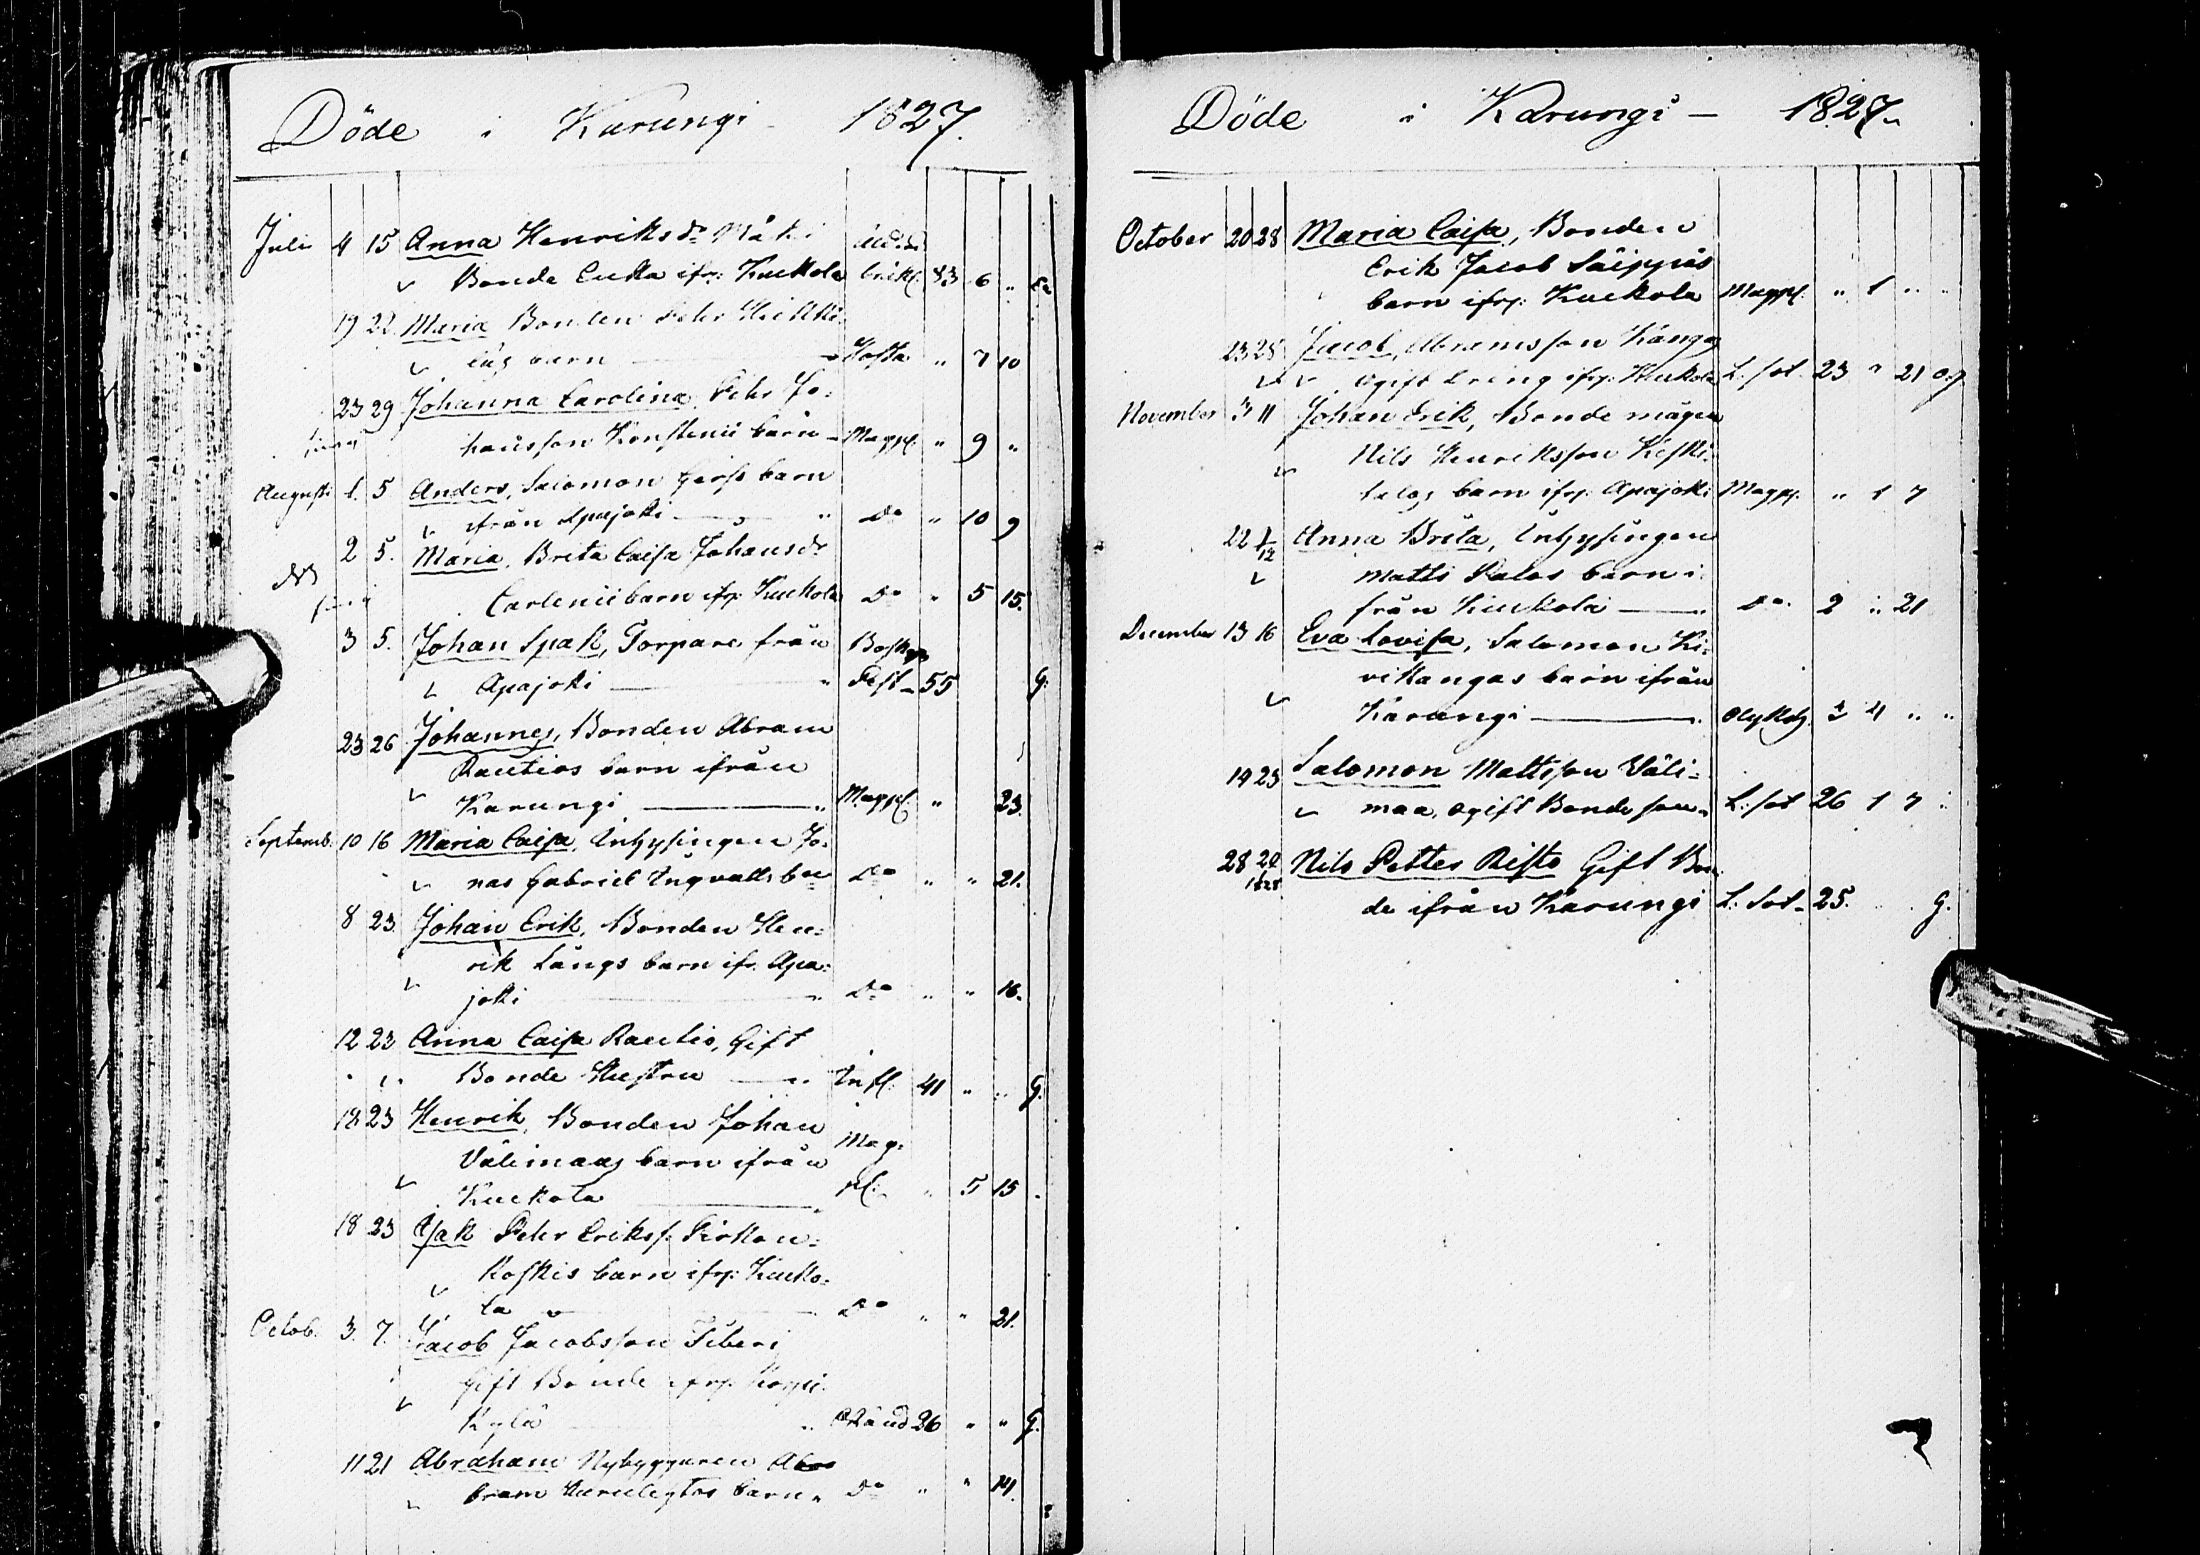 Döde i Karungi 1827.
Juli 4 15 Anna Henriksdr Mäki
Bonde Enka ifr: Kuckola 83 6 " En
19 22 Maria Bonden Pehr
barn Hosta " 7 10
23 29 Johanna Carolina, Pehr Jo=
hansson barn Magpl: " 9 "
Augusti 1. 5 Anders, Salomon barn
ifrån Apajoki " Do " 10 9
2 5. Maria, Brita Caisa Johansdr
Carlenii barn ifr: Kuckola Do " 5 15.
3 5. Johan Spak, Torpare från
Apajoki " 55 G.
23 26 Johannes, Bonden Abram
Rautios barn ifrån
Karungi " Magpl: " 23.
Septemb. 10 16 Maria Caisa, Inhysingen Jo=
nas Gabriel Ingvalls bn Do " " 21.
8 23 Johan Erik, Bonden Hen=
rik Långs barn ifr. Apa=
joki " Do " " 16.
12 23 Anna Caisa Rautio, Gift
Bonde Hustru " Infl: 41 " " G.
18 23 Henrik, Bonden Johan Mag=
Välimaas barn ifrån
Kuckola pl: " 5 15 "
18 23 Isak Pehr Erikss.
koskis barn ifr: Kucko=
la Do " " 21.
Octob. 3. 7. Jacob Jacobsson
Gift Bonde ifr: Korpi=
kylä " 26 " " G.
11 21 Abraham Nybyggaren
bram barn " Do " " 14.
Döde i Karungi — 1827.
October 20 28 Maria Caisa, Bonden
Erik Jacob
barn ifr: Kuckola Magpl: " 1 " "
23 28 Jacob, Abramsson Kangas
ogift ifr: Kuckola L: sot 23 " 21 Og
November 3 11 Johan Erik, Bonde mågen
Nils Henriksson Keski=
talos barn ifr: Apajoki Magpl. " 1 7
22 2/12 Anna Brita, Inhysingen
Matts Palos barn i=
från Kuckola " Do. 2 " 21
December 13 16 Eva Lovisa, Salomon Ki=
vikangas barn ifrån
Karungi " Olyksh. 3 4 " "
19 23 Salomon Mattsson Väli=
maa, ogift Bonde son " L: sot 26 1 7 "
28 Nils Petter Risto Gift Bon
de ifrån Karungi L. Sot 25. G.